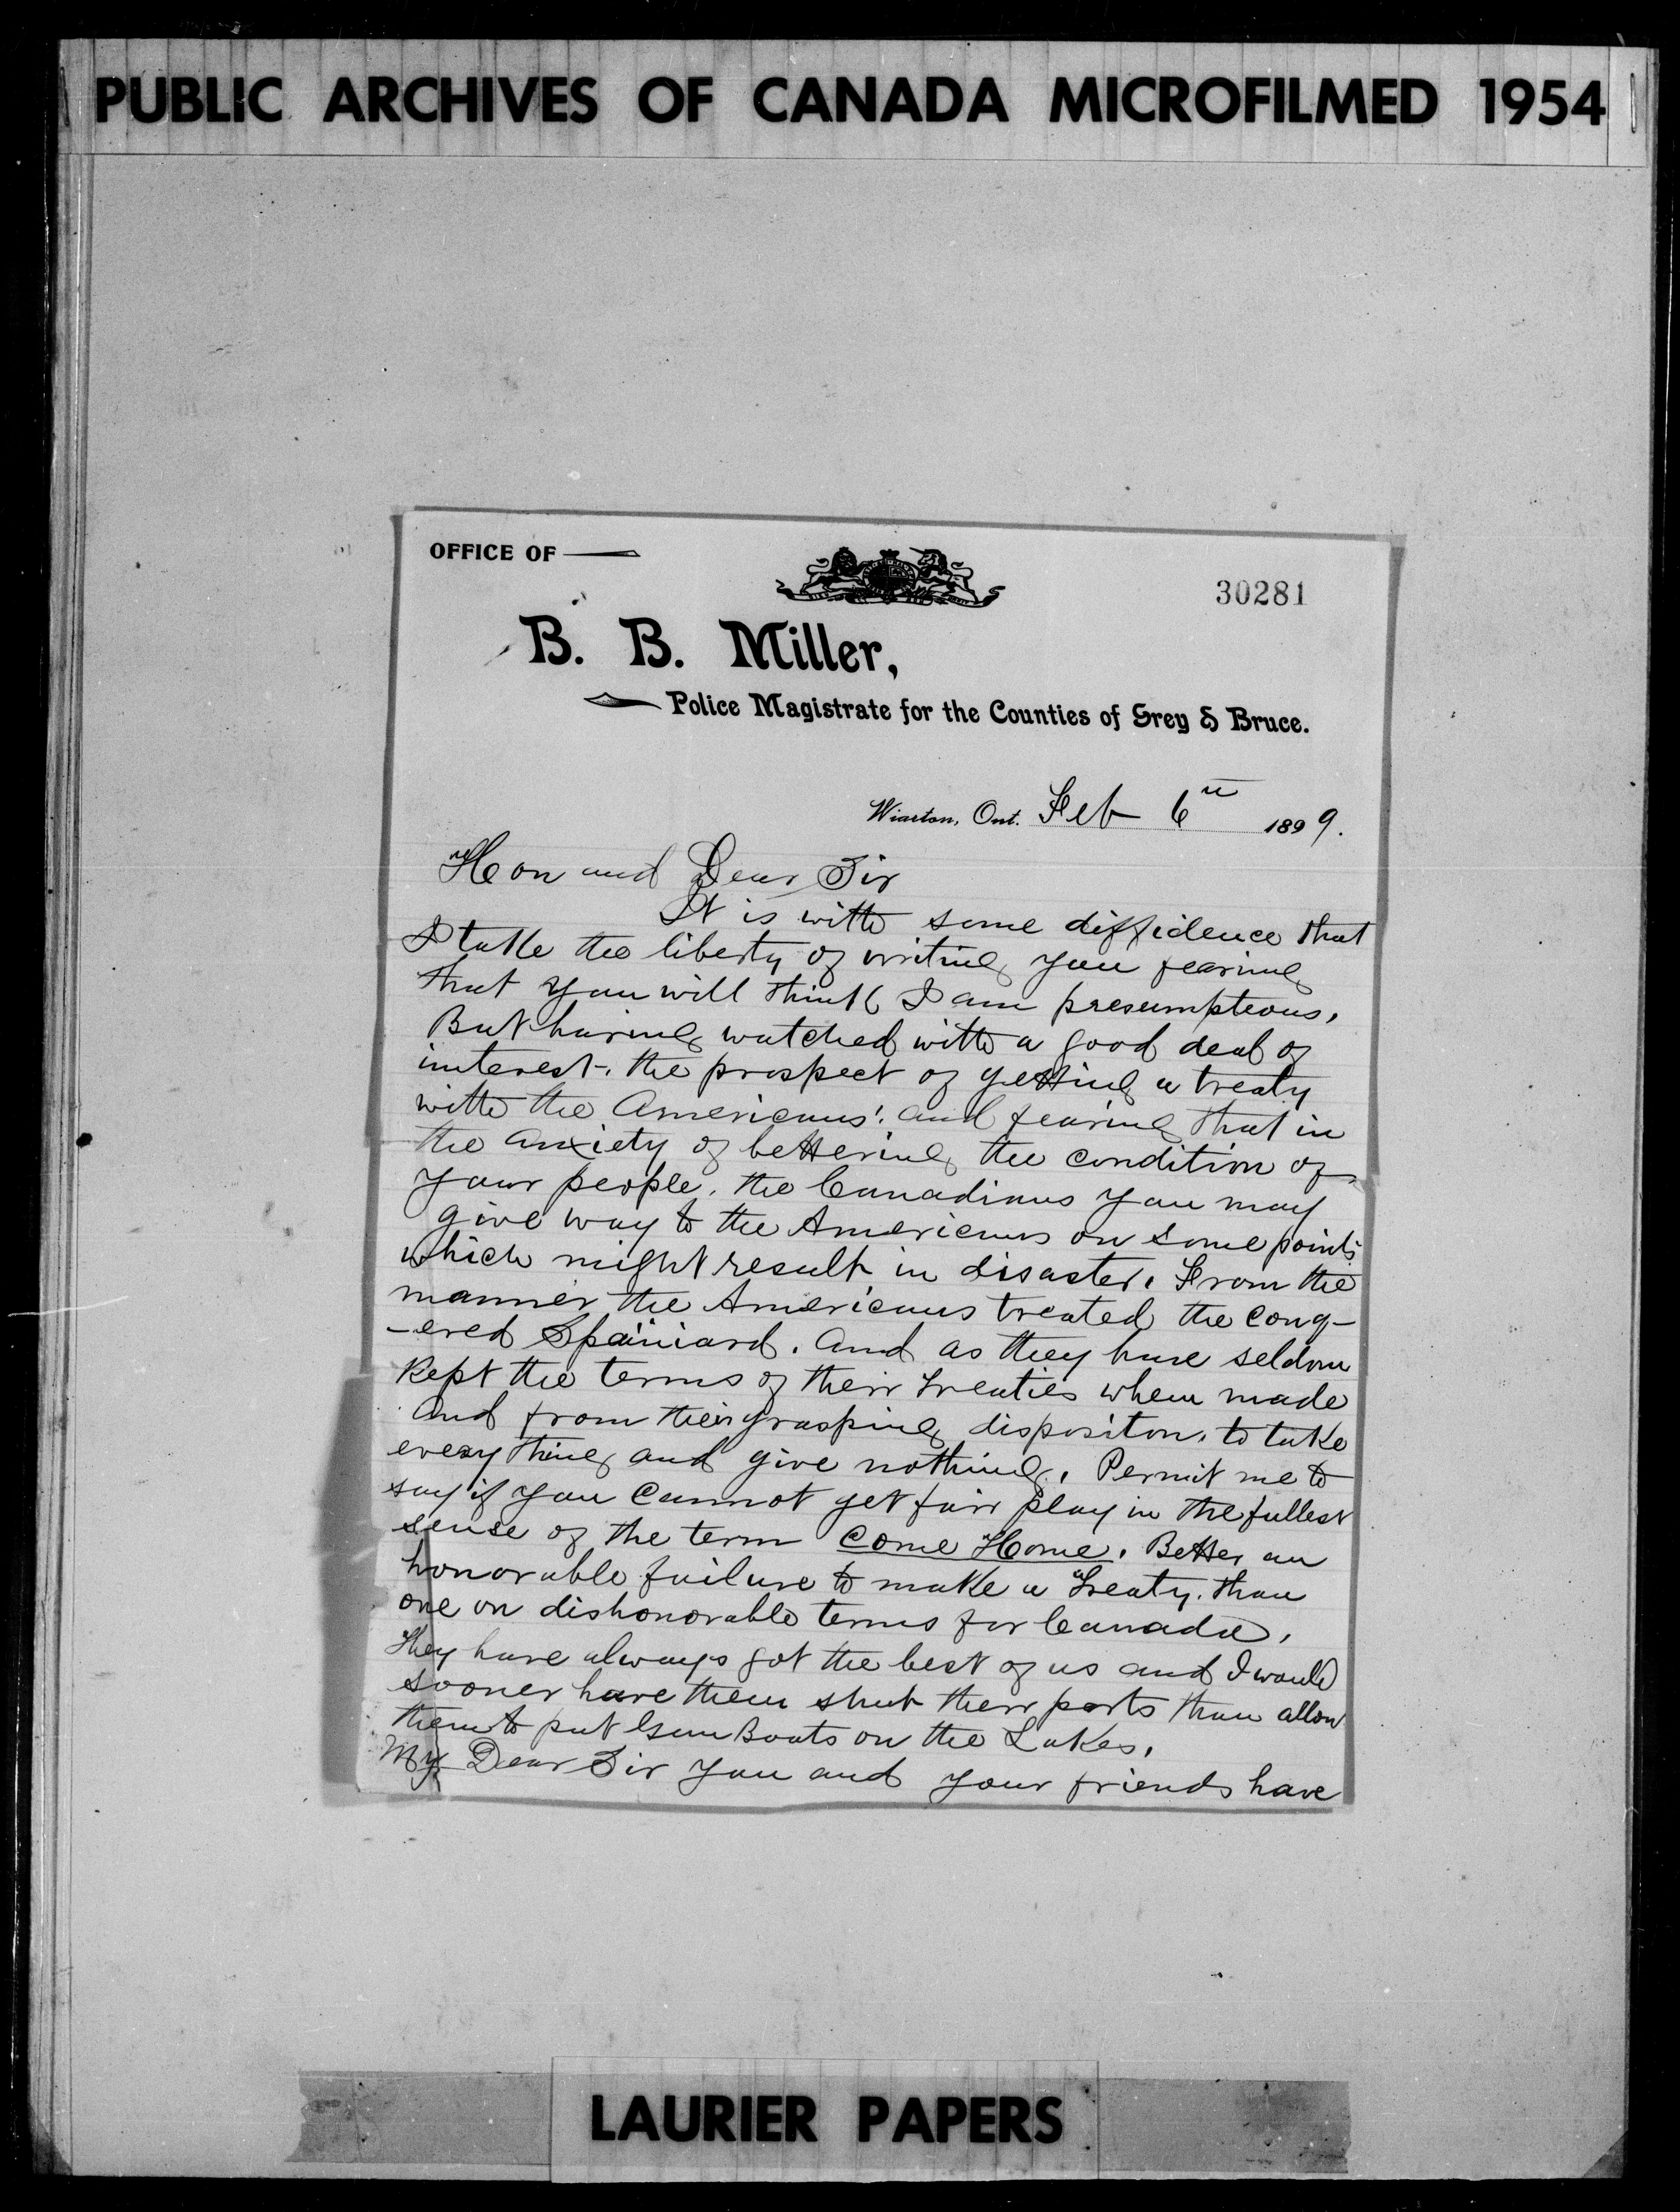 PUBLIC ARCHIVES OF CANADA MICROFILMED 1954
OFFICE OF
30281
B. B. Miller,
Police Magistrate for the Counties of Grey & Bruce.
Wiarton, Ont. Feb 6th 1899.
Hon and Dear Sir
It is with some diffidence that
I take the liberty of writing you fearing
that you will think I am presumpteous,
But having watched with a good deal of
interest. the prospect of getting a treaty
with the Americans. and fearing that in
the anxiety of bettering the condition of
your people. the Canadians you may
give way to the Americans on some points
which might result in disaster. From the
manner the Americans treated the conq-
-ered Spaniard. And as they have seldom
kept the terms of their treaties when made
And from their grasping dispositon. to take
every thing and give nothing. Permit me to
say if you cannot get fair play in the fullest
sense of the term Come Home. Better an
honorable failure to make a treaty. than
one on dishonorable terms for Canada.
They have always got the best of us and I would
sooner have them shut their ports than allow
them to put Gun Boats on the Lakes.
My Dear Sir you and your friends have
LAURIER PAPERS